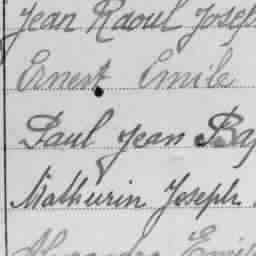 Jean Raoul Joseph
Ernest Emile
Paul Jean
Mathurin Joseph